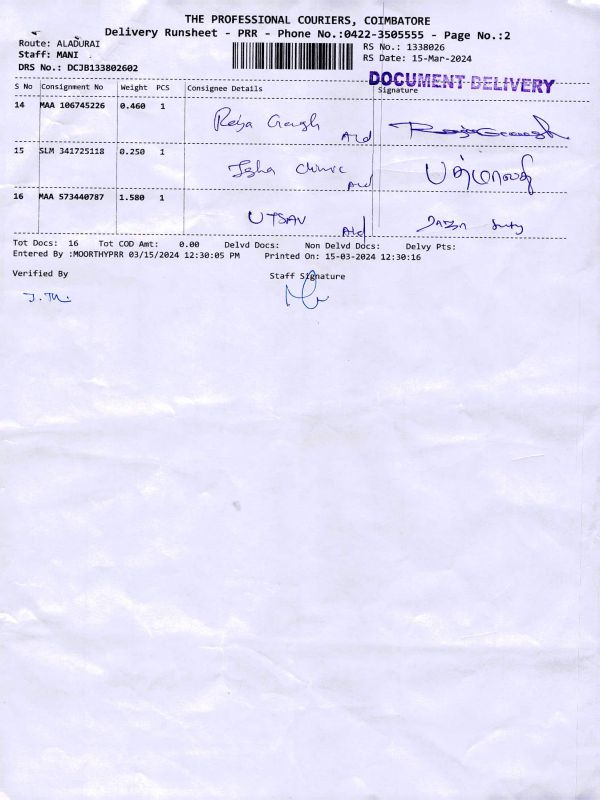 THE PROFESSIONAL COURIERS, COIMBATORE
Delivery Runsheet - PRR - Phone No.:0422-3505555 - Page No.:2
Route: ALADURAI
RS No.: 1338026
Staff: MANI
RS Date: 15-Mar-2024
DRS No.: DCJB133802602
DOCUMENT DELIVERY
S No Consignment No Weight PCS Consignee Details Signature
14 MAA 106745226 0.460 1
15 SLM 341725118 0.250 1 Clinic
16 MAA 573440787 1.580 1 UTSAV
Tot Docs: 16 Tot COD Amt: 0.00 Delvd Docs: Non Delvd Docs: Delvy Pts:
Entered By :MOORTHYPRR 03/15/2024 12:30:05 PM Printed On: 15-03-2024 12:30:16
Verified By Staff Signature